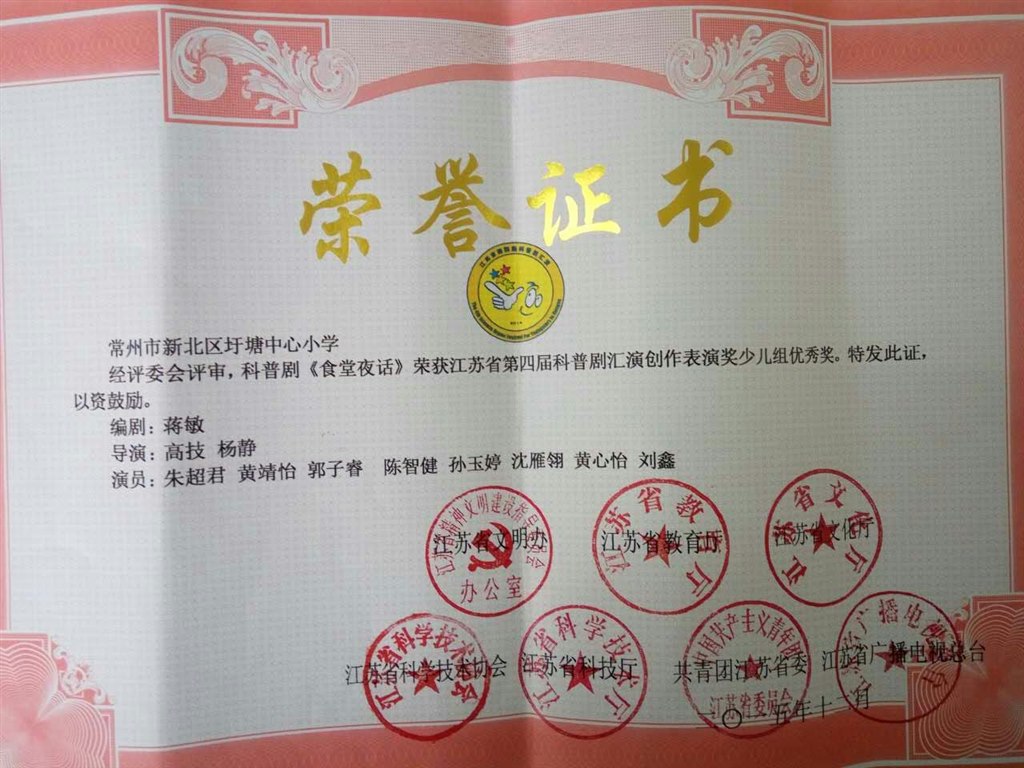 荣誉证书
常州市新北区圩塘中心小学
经评委会评审，科普剧《食堂夜话》荣获江苏省第四届科普剧汇演创作表演奖少儿组优秀奖。特发此证，
以资鼓励。
编剧：蒋敏
导演：高技 杨静
演员：朱超君 黄靖怡 郭子睿 陈智健 孙玉婷 沈雁翎 黄心怡 刘鑫
江苏省文明办 江苏省教育厅 江苏省文化厅
办公室
江苏省教育厅
江苏省文化厅
江苏省科学技术协会 江苏省科技厅 共青团江苏省委 江苏省广播电视总台
江苏省科学技术厅
江苏省委员会
二〇一五年十二月